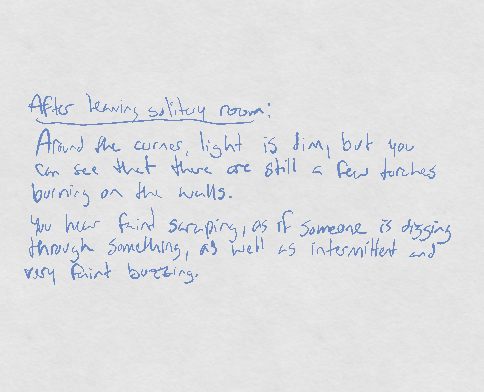 After leaving solitary room:
Around the corner, light is dim, but you
can see that there are still a few torches
burning on the walls.
You hear faint scraping, as if someone is digging
through something, as well as intermittent and
very faint buzzing.